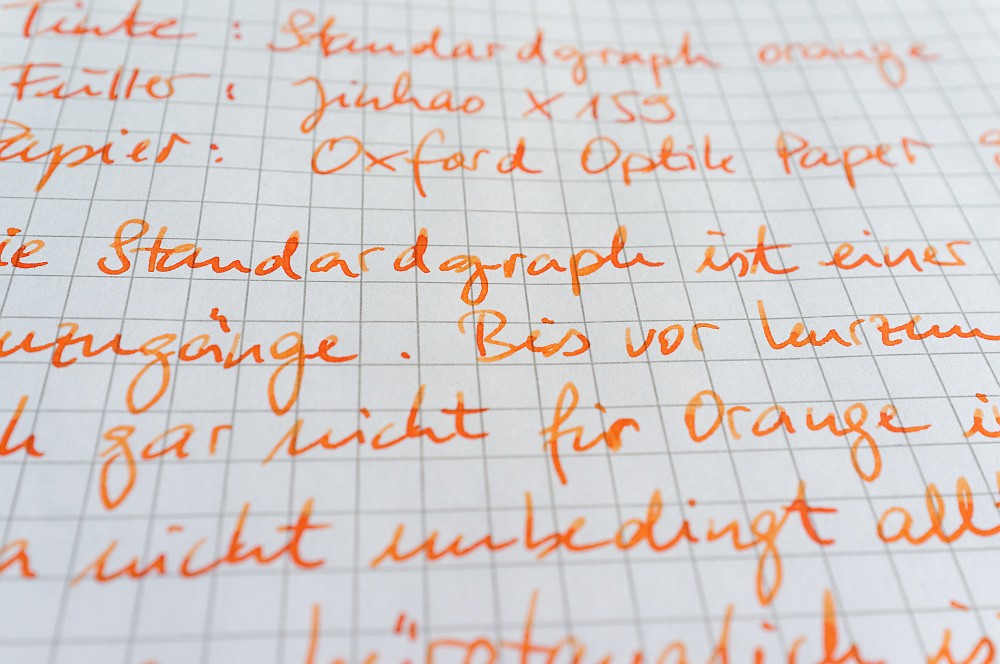 Tinte : Standardgraph orange
Füller : Jinhao X159
Papier : Oxford Optik Paper
ie Standardgraph ist einer
uzugänge . Bis vor kurzem
h gar nicht für Orange
a nicht unbedingt all
bürotauglich is